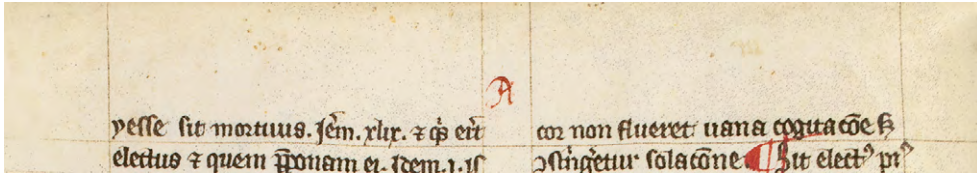 A
yesse sit mortuus. Jer̄m. xlix. ⁊ qͥs erit
electus ⁊ quem p̄ponam ei. Idem. l. is
cor non flueret uana cogitac̄oe sꝫ
ꝯstringetur solac̄one ¶ Sit elect᷒ pi᷒